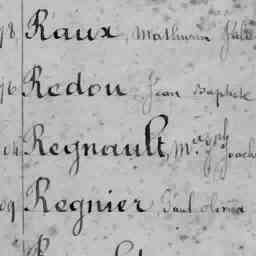 98 Raux, Mathurin Jule
96 Redou Jean Baptiste
04 Regnault, M Joach
09 Regnier, Paul